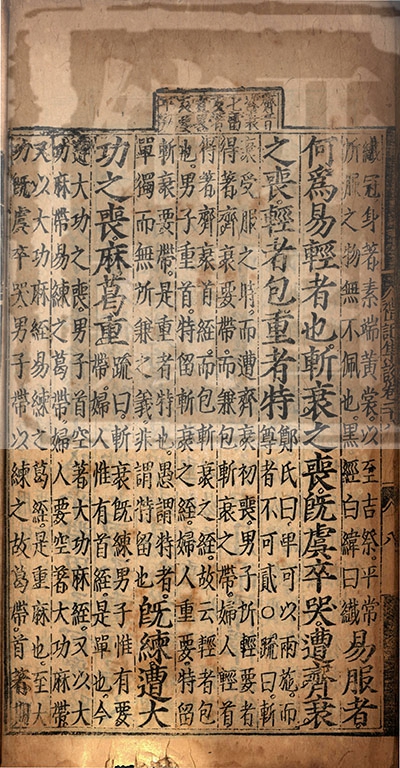 齊音
七雷
纖冠身著素端黃裳以至吉祭平常
所服之物無不佩也黑經白緯曰纖
易服者
何爲易輕者也斬衰之喪既虞卒哭遭齊衰
之喪輕者包重者特
鄭氏曰卑可以兩施而
尊者不可貳○疏曰斬
衰受服之時而遭齊衰初喪男子所輕要者
得著齊衰要帶而兼包斬衰之帶婦人輕首
得著齊衰首絰而包斬衰之絰故云輕者包
也男子重首特留斬衰之絰婦人重要特留
斬衰要帶是重者特也愚謂特者
單獨而無所兼之義非謂特留也
既練遭大
功之喪麻葛重
疏曰斬衰既練男子惟有要
帶婦人惟有首絰是單也今
遭大功之喪男子首空著大功麻絰又以大
功麻帶易練之葛帶婦人要空著大功麻帶
又以大功麻絰易練之葛絰是重麻也至大
功既虞卒哭男子帶以練之故葛帶首著期